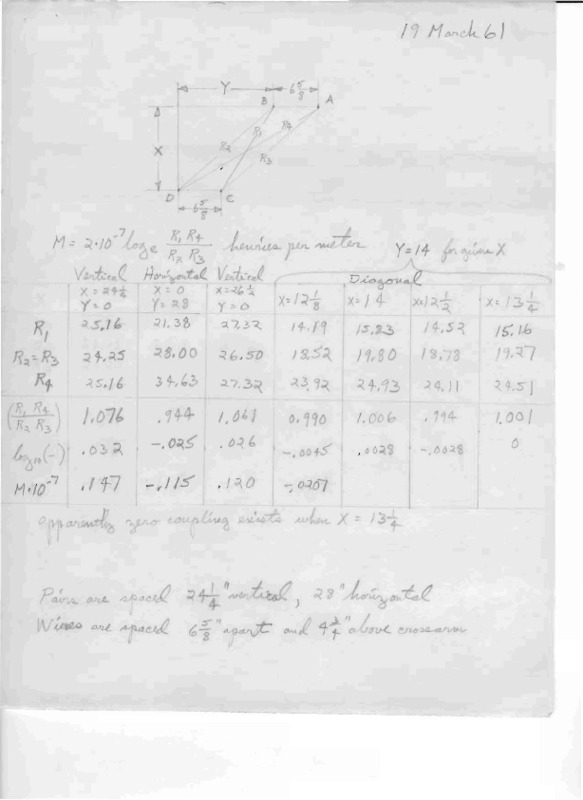 19 March 61
Y 6 5/8
B A
R1 R4
X R2 R3
D C
6 5/8
M = 2·10⁻⁷ logₑ R1 R4 / R2 R3 henries per meter Y=14 for given X
Vertical Horizontal Vertical Diagonal
X = 24 1/4 X = 0 X = 26 1/2 X=12 1/8 X=14 X=12 1/2 X=13 1/4
Y = 0 Y = 28 Y = 0
R1 25.16 21.38 27.32 14.19 15.83 14.52 15.16
R2=R3 24.25 28.00 26.50 18.52 19.80 18.78 19.27
R4 25.16 34.63 27.32 23.92 24.93 24.11 24.51
(R1 R4 / R2 R3) 1.076 .944 1.061 0.990 1.006 .994 1.001
log₁₀(-) .032 -.025 .026 -.0045 .0028 -.0028 0
M·10⁻⁷ .147 -.115 .120 -.0207
apparently zero coupling exists when X = 13 1/4
Pairs are spaced 24 1/4" vertical, 28" horizontal
Wires are spaced 6 5/8" apart and 4 3/4" above crossarm